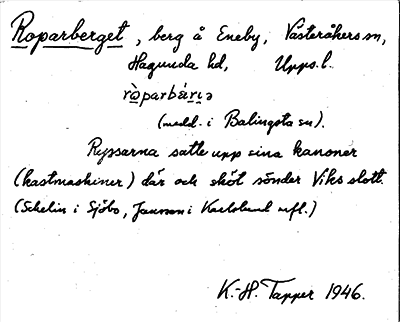 Roparberget, berg å Eneby, Västeråkers sn,
Hagunda hd, Upps.l.
ròparbárɩə
(medd. i Balingsta sn).
Ryssarna satte upp sina kanoner
(kastmaskiner) där och sköt sönder Viks slott.
(Schelin i Sjöbo, Jansson i Karlslund mfl.)
K.-H. Tapper 1946.